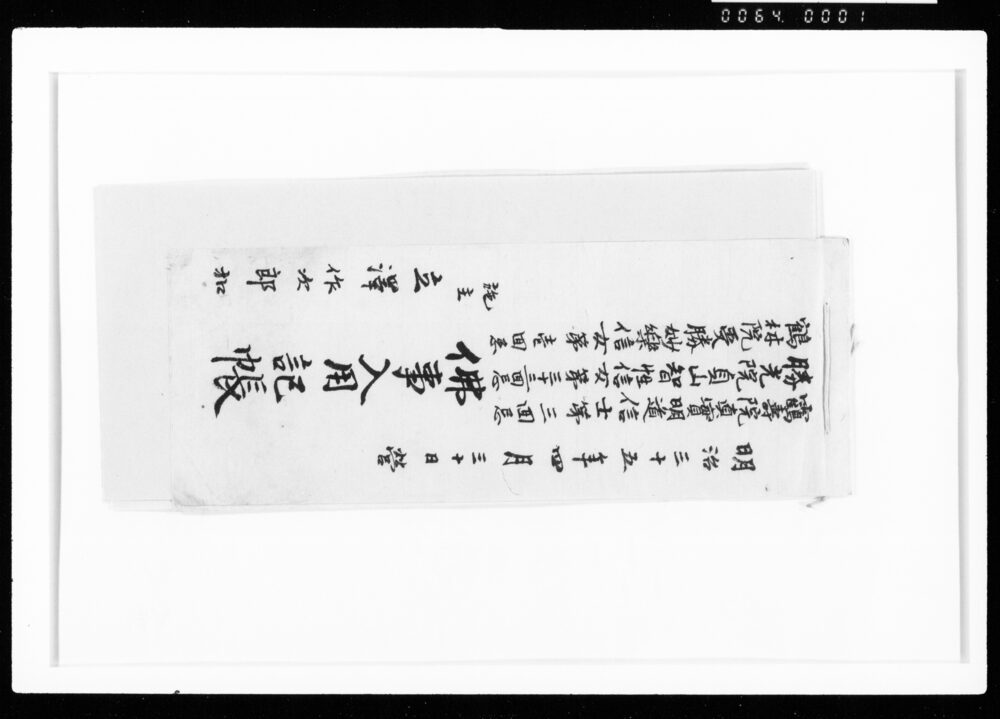 0064.0001
明治三十五年四月三十日營
靏壽院真實明道信士第三回忌
勝光院貞山智性信女第三十三回忌
鶴林院夏勝妙樂信女第壱回忌
佛事入用記帳
施主 立澤作次郎 扣